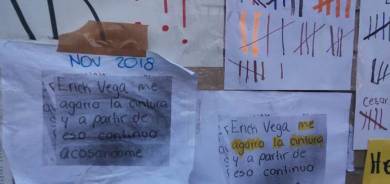 NOV 2018
Erick Vega me
agarro la cintura
y a partir de
eso continuo
acosandome
Erick Vega me
agarro la cintura
y a partir de
eso continuo
cesar